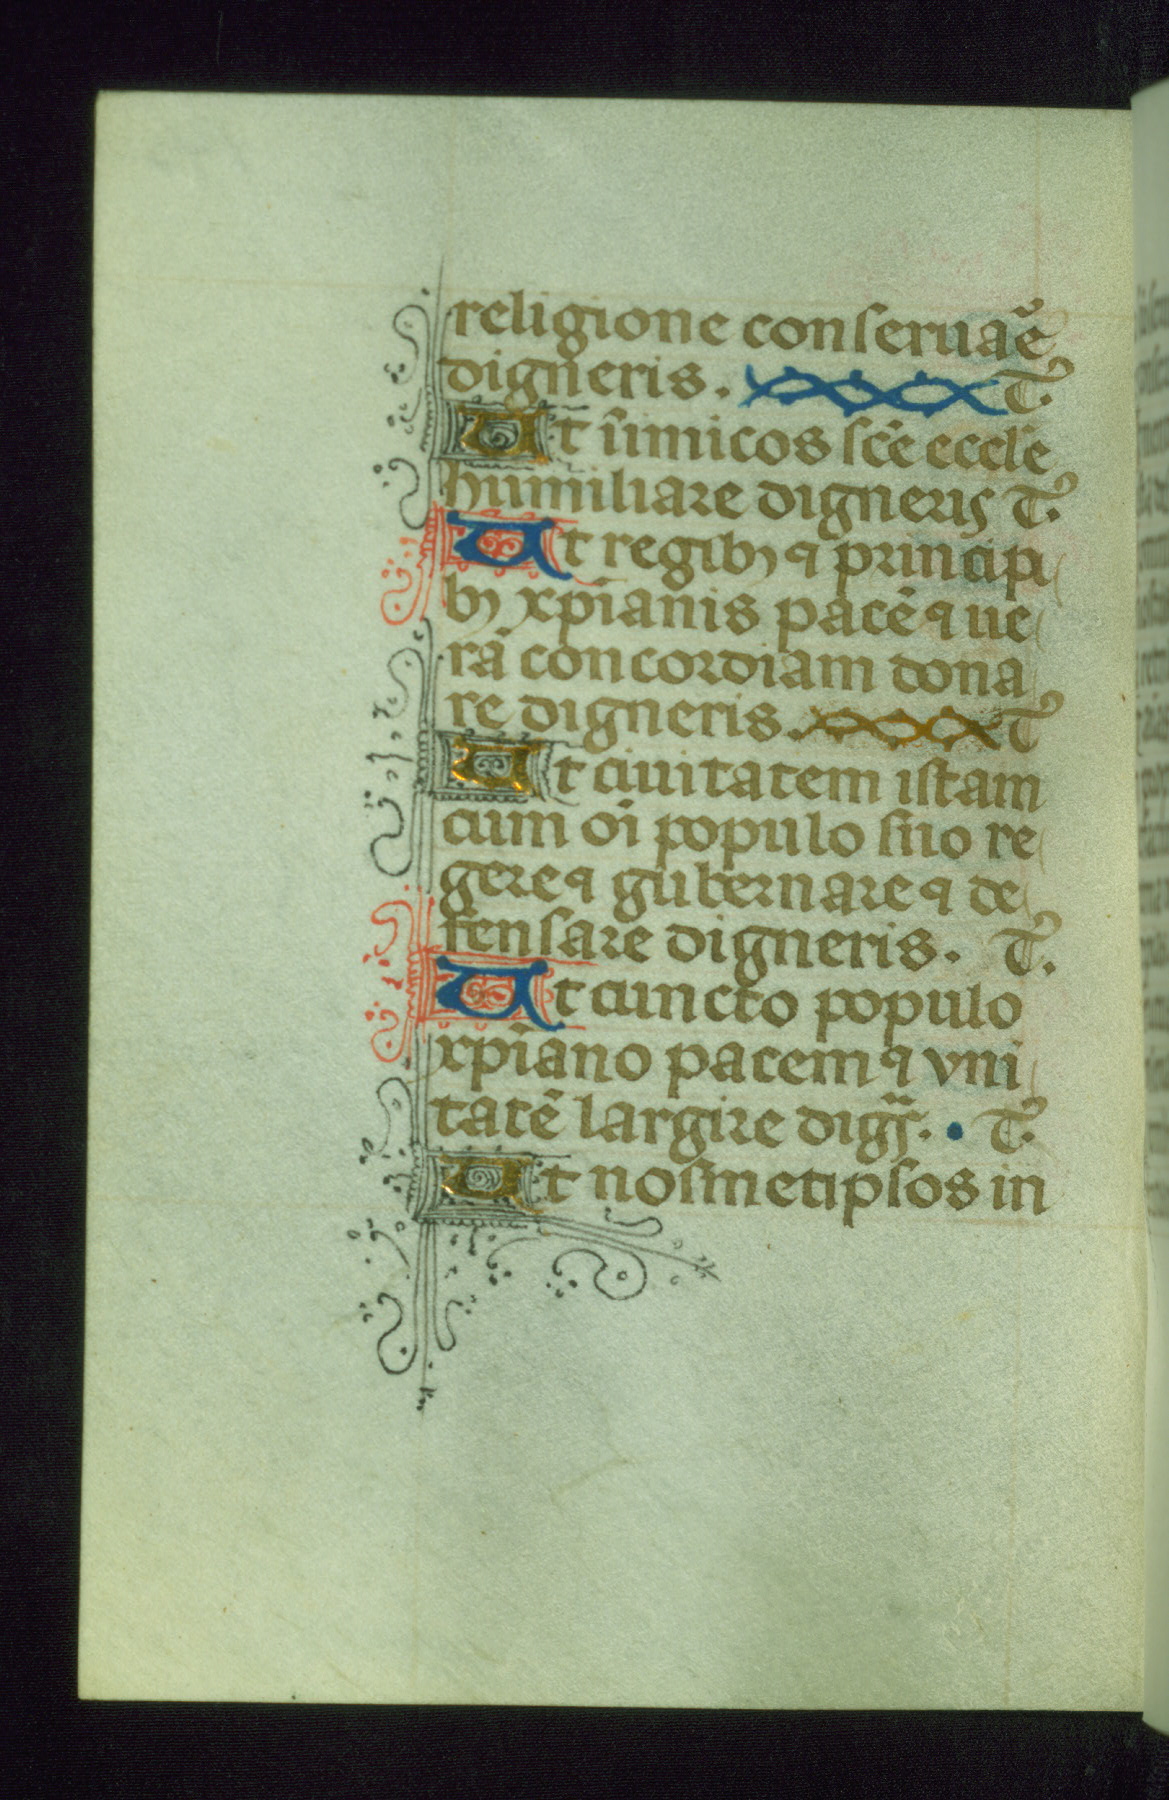 religione conseruaẽ
digneris. T̃.
Ut inimicos scẽ eccl'e
humiliare digneris T̃.
Ut regibꝫ ⁊ princip̱i
bꝫ xp̄ianis pacẽ ⁊ ue
rã concordiam dona
re digneris. T̃
Ut ciuitatem istam
cum oĩ populo suo re
gere ⁊ gubernare ⁊ de
fensare digneris. T̃.
Ut cuncto populo
xp̄iano pacem ⁊ vni
tatẽ largire dig̃r̃. T̃.
Ut nosmetipsos in